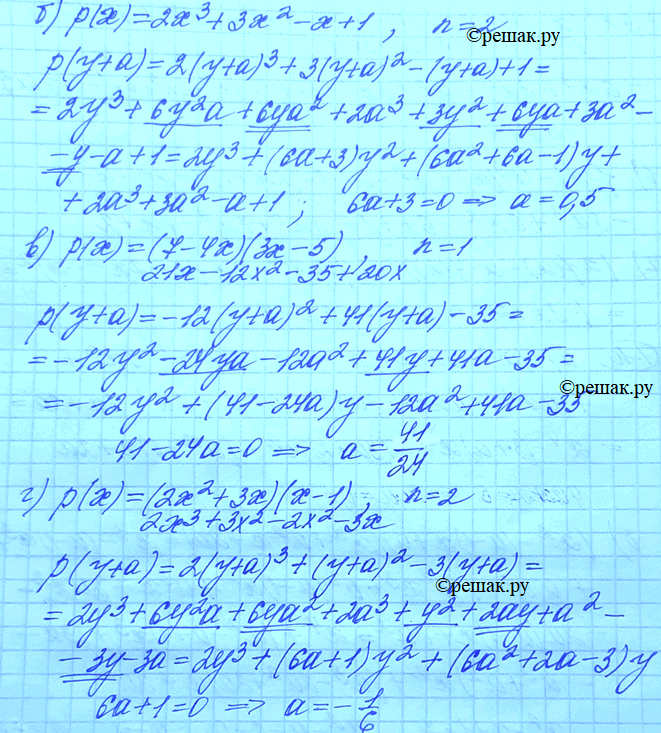 б) p(x)=2x³+3x²-x+1, n=2
©решак.ру
p(y+a)=2(y+a)³+3(y+a)²-(y+a)+1=
=2y³+6y²a+6ya²+2a³+3y²+6ya+3a²-
-y-a+1=2y³+(6a+3)y²+(6a²+6a-1)y+
+2a³+3a²-a+1; 6a+3=0 => a=0,5
в) p(x)=(7-4x)(3x-5), n=1
21x-12x²-35+20x
p(y+a)=-12(y+a)²+41(y+a)-35=
=-12y²-24ya-12a²+41y+41a-35=
©решак.ру
=-12y²+(41-24a)y-12a²+41a-35
41-24a=0 => a=41/24
г) p(x)=(2x²+3x)(x-1), n=2
2x³+3x²-2x²-3x
p(y+a)=2(y+a)³+(y+a)²-3(y+a)=
©решак.ру
=2y³+6y²a+6ya²+2a³+y²+2ay+a²-
-3y-3a=2y³+(6a+1)y²+(6a²+2a-3)y
6a+1=0 => a=-1/6